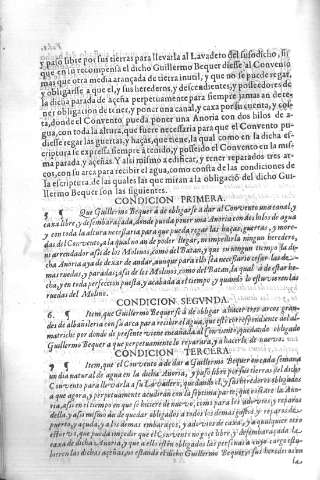 y passo libre por sus tierras para llevarla al Lavadero del susodicho, sin
que en su recompensa el dicho Guillermo Bequer diesse al Convento
mas que otra media arançada de tierra inutil, y que no se puede regar,
y obligarse a que el, y sus herederos, y descendientes, y posseedores de
la dicha parada de açeña perpetuamente para siempre jamas an de te-
ner obligacion de tener, y poner una canal, y caxa por su cuenta, y cos-
ta, donde el Convento pueda poner una Anoria con dos hilos de a-
gua, con toda la altura, que fuere necessaria para que el Convento pu-
diesse regar las guertas, y haças, que tiene, la qual como en la dicha es-
criptura se expressa, siempre à tenido, y posseido el Convento en la mis-
ma parada, y açeñas. Y alsi mismo a edificar, y tener reparados tres ar-
cos, con su arca para recibir el agua, como consta de las condiciones de
la escriptura, de las quales las que miran a la obligacion del dicho Gui-
llermo Bequer son las siguientes.
CONDICION PRIMERA.
5. ¶ Que Guillermo Bequer à de obligarse à dar al Convento una canal, y
caxa libre, y desembaraçada, donde pueda poner una Anoria con dos hilos de agua
y con toda la altura necessaria para que pueda regar las haças, guertas, y more-
das del Convento, a la qual no an de poder llegar, ni impedirla ningun heredero,
ni arrendador assi de los Molinos, como del Batan, y que en ningun tiempo la di-
cha Anoria aya de dexar de andar, aunque para ella sea necessario cessar las de-
mas ruedas, y paradas; assi de los Molinos, como del Batan, la qual à de estar he-
cha, y en toda perfeccion puesta, y acabada a el tiempo y quando lo estuvieren las
ruedas del Molino.
CONDICION SEGVNDA.
6. ¶ Item, que Guillermo Bequer se à de obligar à hacer tres arcos gran-
des de albañileria con su arca para recibir el agua, que esté correspondiente del al-
matriche por donde de presente viene encañada al Convento, quedando obligado
Guillermo Bequer a que perpetuamente lo reparará, y a hacerlo de nuevo.
CONDICION TERCERA.
7. ¶ Item, que el Convento à de dar a Guillermo Bequer en cada semana
un dia natural de agua en la dicha Anoria, y passo libre por sus tierras del dicho
Convento para llevarla a su Lavadero, quedando el, y sus herederos obligados
a que agora, y perpetuamente acudirán con la septima parte, que costare la Ano-
ria, assi en el tiempo en que se hiciere de nuevo, como para los adovios, y reparos
della, y assi mismo an de quedar obligados a todos los demas gastos y reparos de
puerto, y açuda, y a los demas embaraços, y adovios de caxa, y a qualquier otro
estorvo, que pueda impedir que el Convento no goce libre, y desembaraçada la
caxa de dicha Anoria, y que a ello estén obligadas las personas a cuyo cargo estu-
bieren las dichas açeñas, no estando el dicho Guillermo Bequer, ò sus herederos en
la